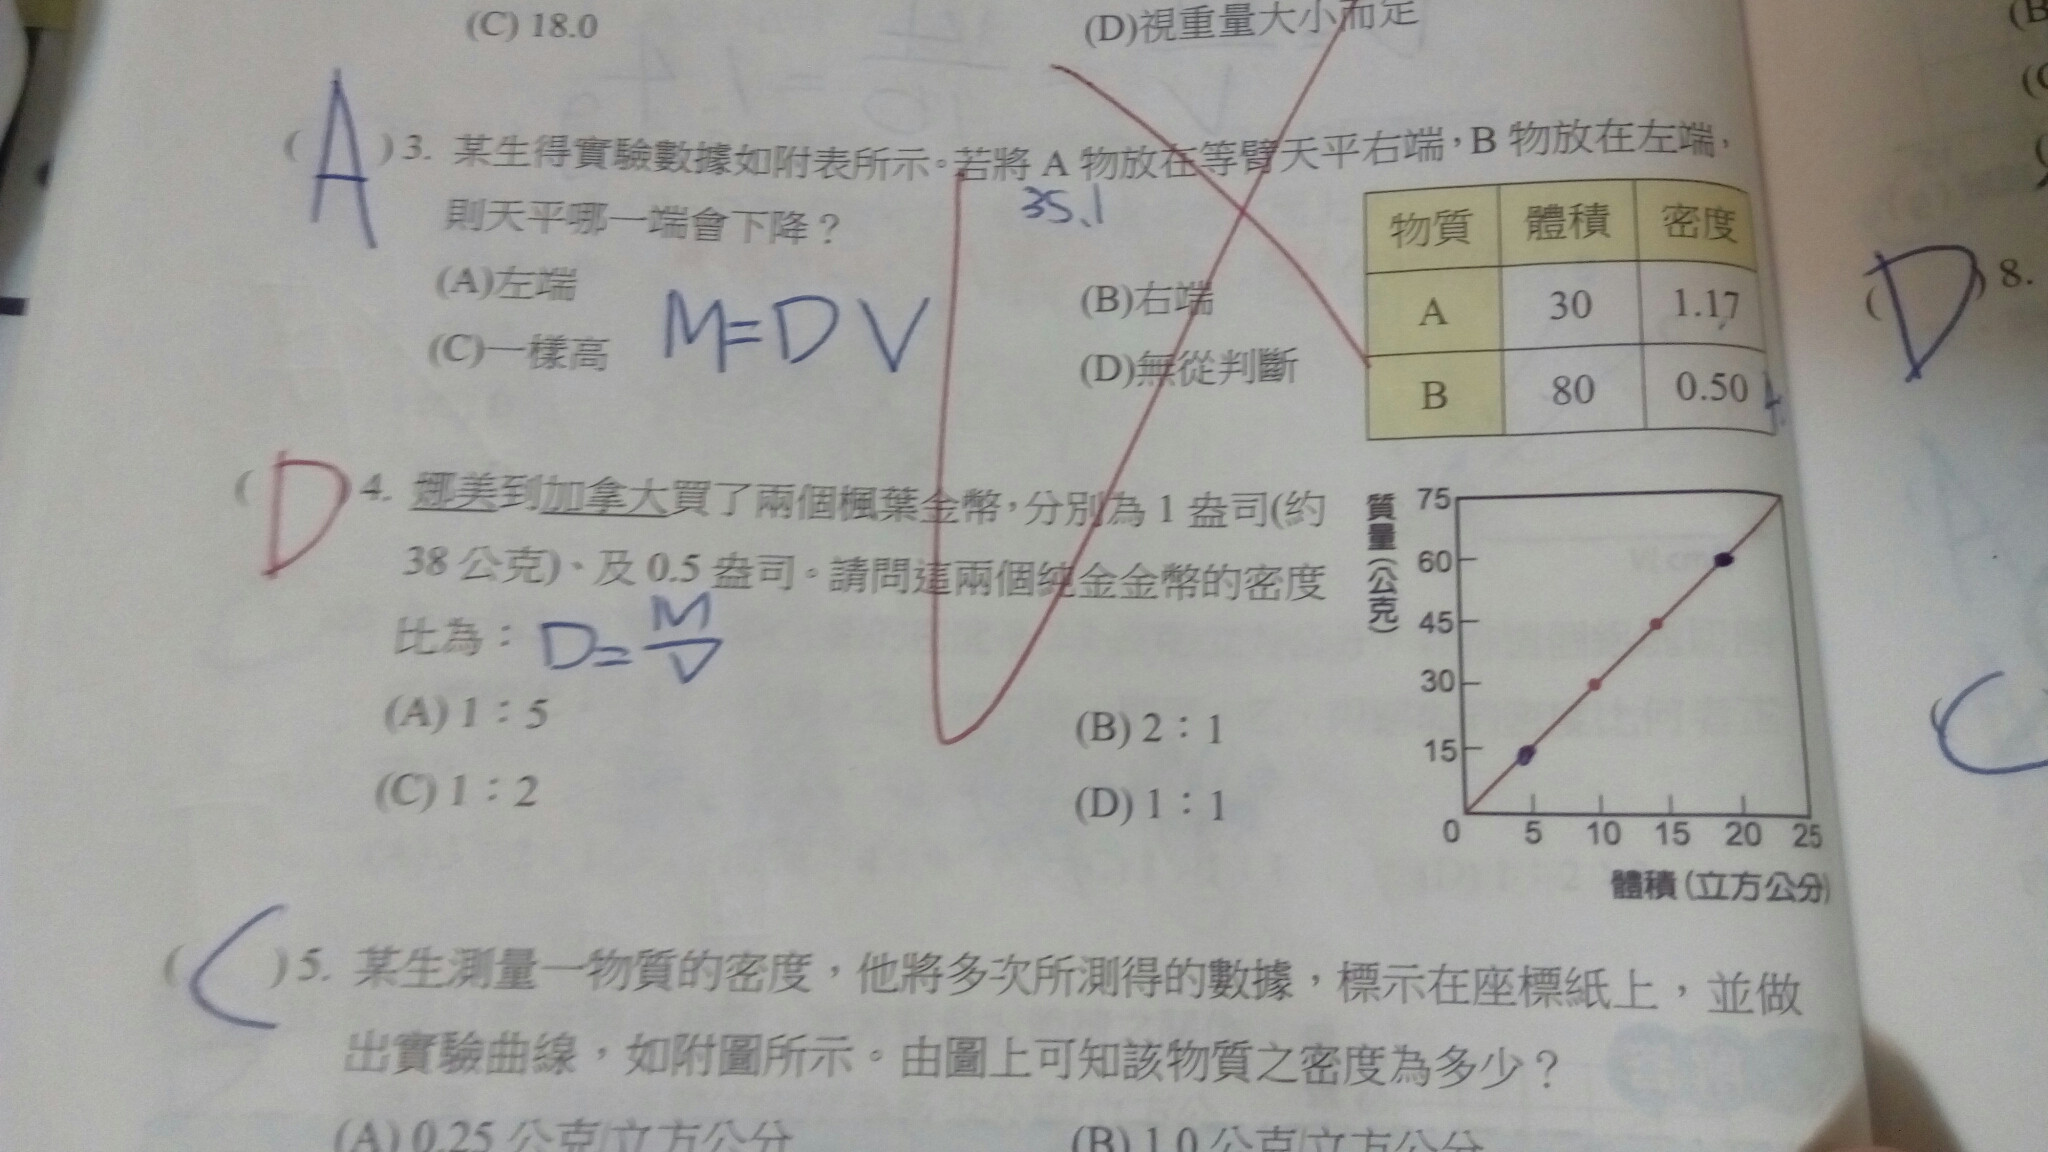 (C) 18.0
(D)視重量大小而定
(A)3. 某生得實驗數據如附表所示。若將 A 物放在等臂天平右端，B 物放在左端，
35.1
則天平哪一端會下降？
(A)左端
(B)右端
M=DV
(C)一樣高
(D)無從判斷
物質 體積 密度
A 30 1.17
B 80 0.50
(D)4. 娜美到加拿大買了兩個楓葉金幣，分別為 1 盎司(約
38 公克)、及 0.5 盎司。請問這兩個純金金幣的密度
比為：
D=M/V
(A) 1：5
(B) 2：1
(C) 1：2
(D) 1：1
質量(公克)
75
60
45
30
15
0 5 10 15 20 25
體積(立方公分)
(C)5. 某生測量一物質的密度，他將多次所測得的數據，標示在座標紙上，並做
出實驗曲線，如附圖所示。由圖上可知該物質之密度為多少？
(A) 0.25 公克/立方公分
(B) 1.0 公克/立方公分
(D) 8.
(B
(C
C